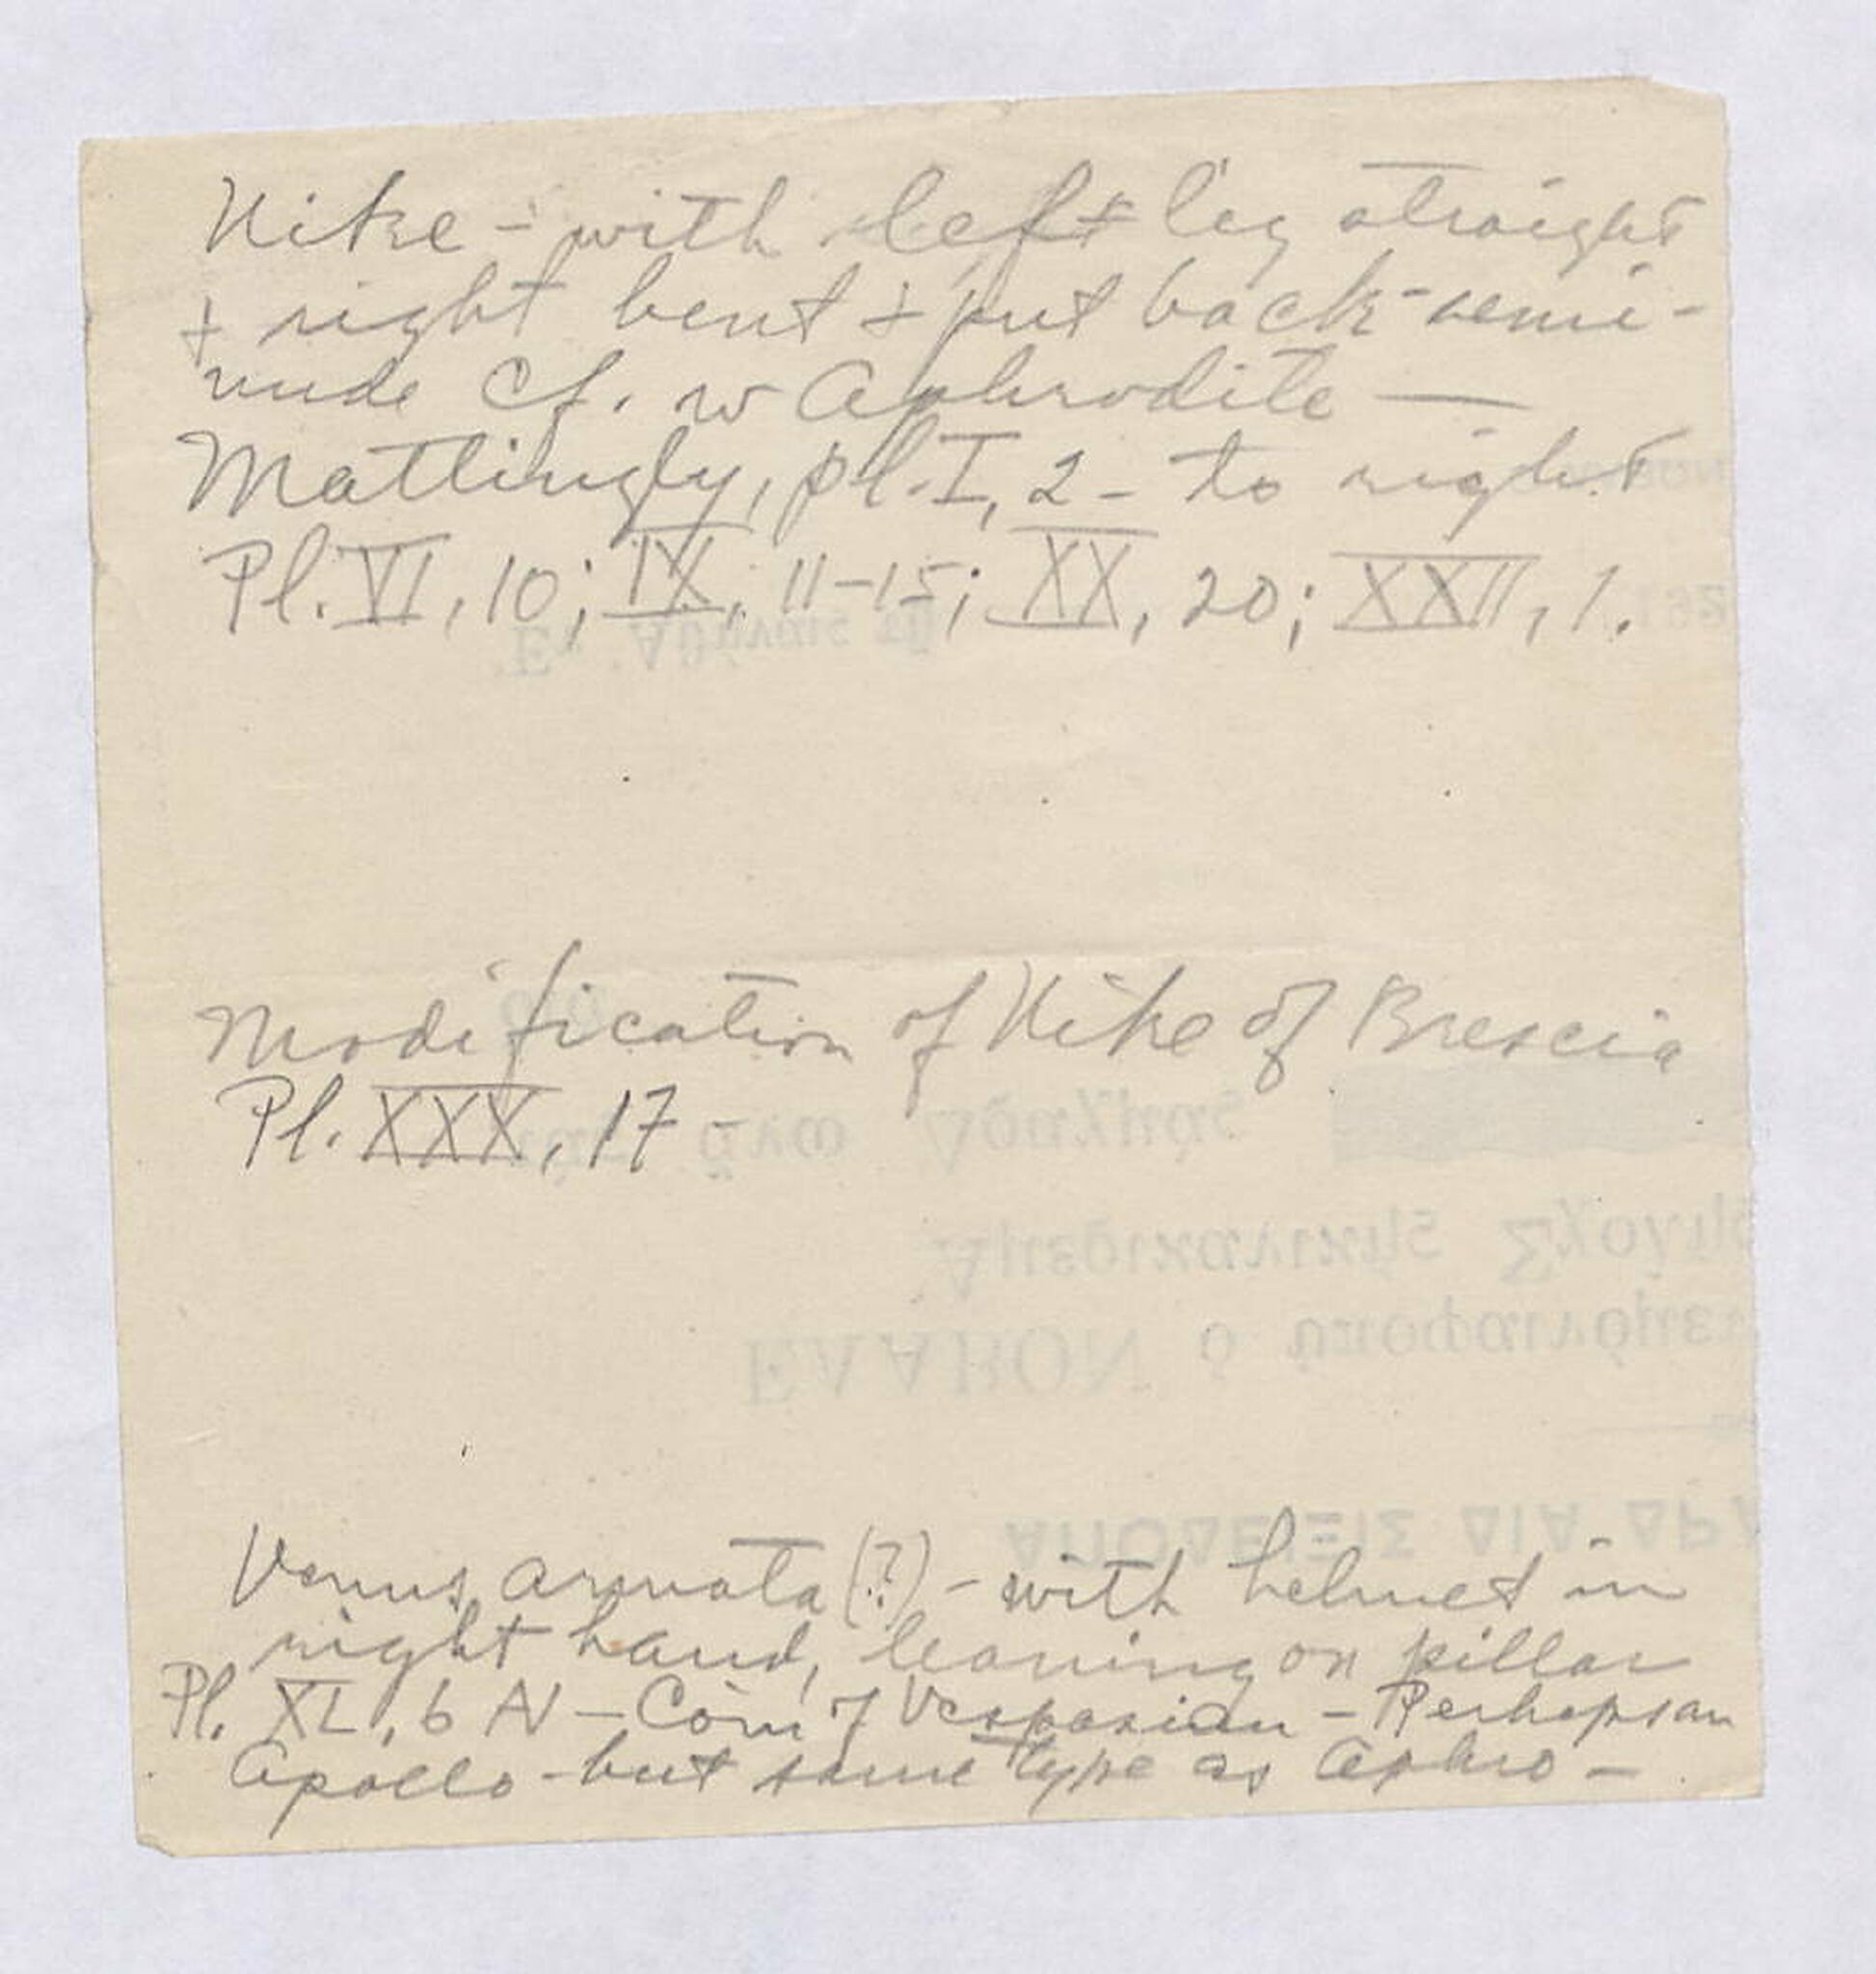 Nike - with left leg straight
+ right bent + put back - semi-
nude cf. w Aphrodite —
Mattingly, pl. I, 2 - to right
Pl. VI, 10; IX, 11-15; XX, 20; XXII, 1.
Modification of Nike of Brescia
Pl. XXX, 17 -
Venus armata (?) - with helmet in
right hand, leaning on pillar
Pl. XL, 6 AV - Coin of Vespasian - Perhaps an
Apollo - but same type as Aphro -